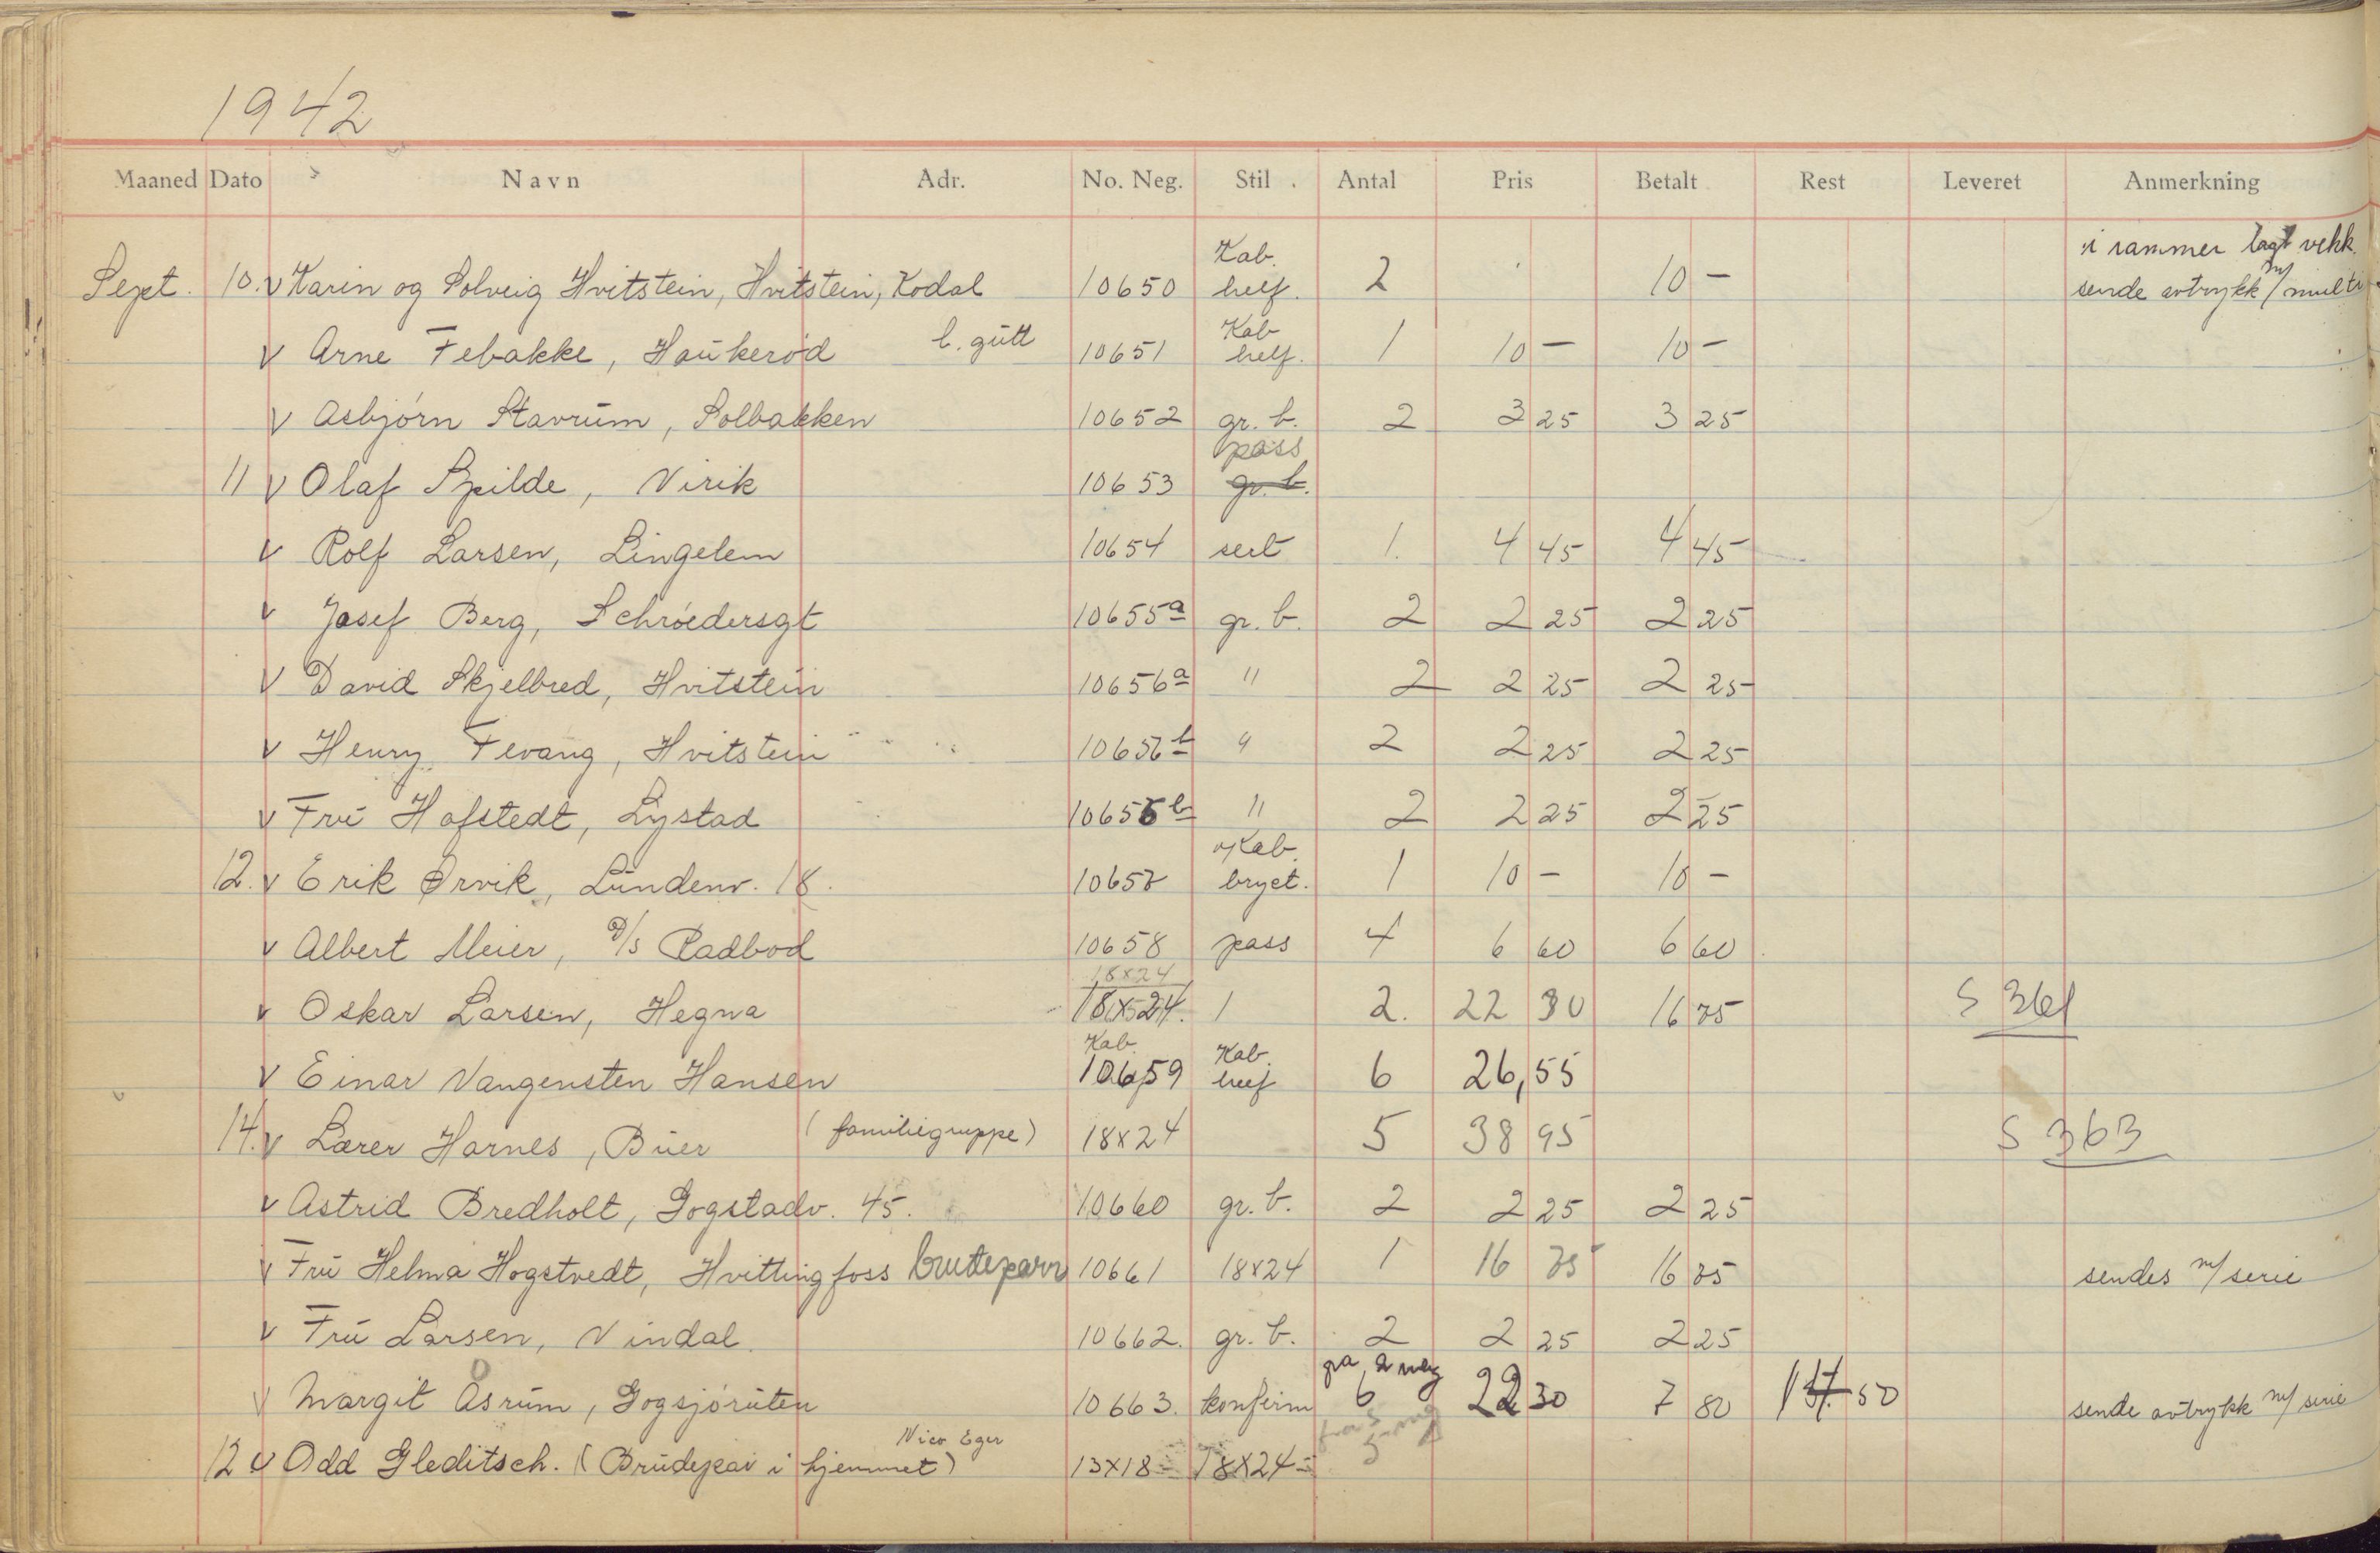 1942
Maaned Dato Navn Adr. No. Neg. Stil. Antal Pris Betalt Rest Leveret Anmerkning
i rammer lagt vekk.
Sept. 10. v Karin og Solveig Hvitstein, Hvitstein, Kodal 10650 Kab. helf. 2 10 — sende avtrykk m/ multi
v Arne Febakke, Haukerød l. gutt 10651 Kab helf. 1 10 — 10 —
v Asbjørn Stavrum, Solbakken 10652 gr. b. 2 3 25 3 25
11 v Olaf Spilde, Virik 10653 pass gr. b.
v Rolf Larsen, Lingelem 10654 sert 1. 4 45 4 45
v Josef Berg, Schrøedersgt 10655a gr. b. 2 2 25 2 25
v David Skjelbred, Hvitstein 10656a " 2 2 25 2 25
v Henry Fevang, Hvitstein 10656b " 2 2 25 2 25
v Fru Hafstedt, Lystad 10655b " 2 2 25 2 25
12. v Erik Ørvik, Lundenv. 18. 10657 Kab. bryst. 1 10 — 10 —
v Albert Meier, D/S Radbod 10658 pass 4 6 60 6 60
18x24
v Oskar Larsen, Hegna 18x24. 1 2. 22 30 16 75 S 361
Kab.
v Einar Vangensten Hansen 10659 Kab. helf 6 26,55
14. v Lærer Harnes, Buer (familiegruppe) 18x24 5 38 95 S 363
v Astrid Bredholt, Gogstadv. 45. 10660 gr. b. 2 2 25 2 25
v Fru Helma Hogstvedt, Hvittingfoss brudeparr 10661 18x24 1 16 75 16 75 sendes m/ serie
v Fru Larsen, Vindal. 10662. gr. b. 2 2 25 2 25
på 2 neg
v Margit Åsrum, Gogsjøruten 10663. konfirm 6 22 30 7 80 50 sende avtrykk m/ serie
12 v Odd Gleditsch. (Brudepar i hjemmet) 13x18 = 18x24 =